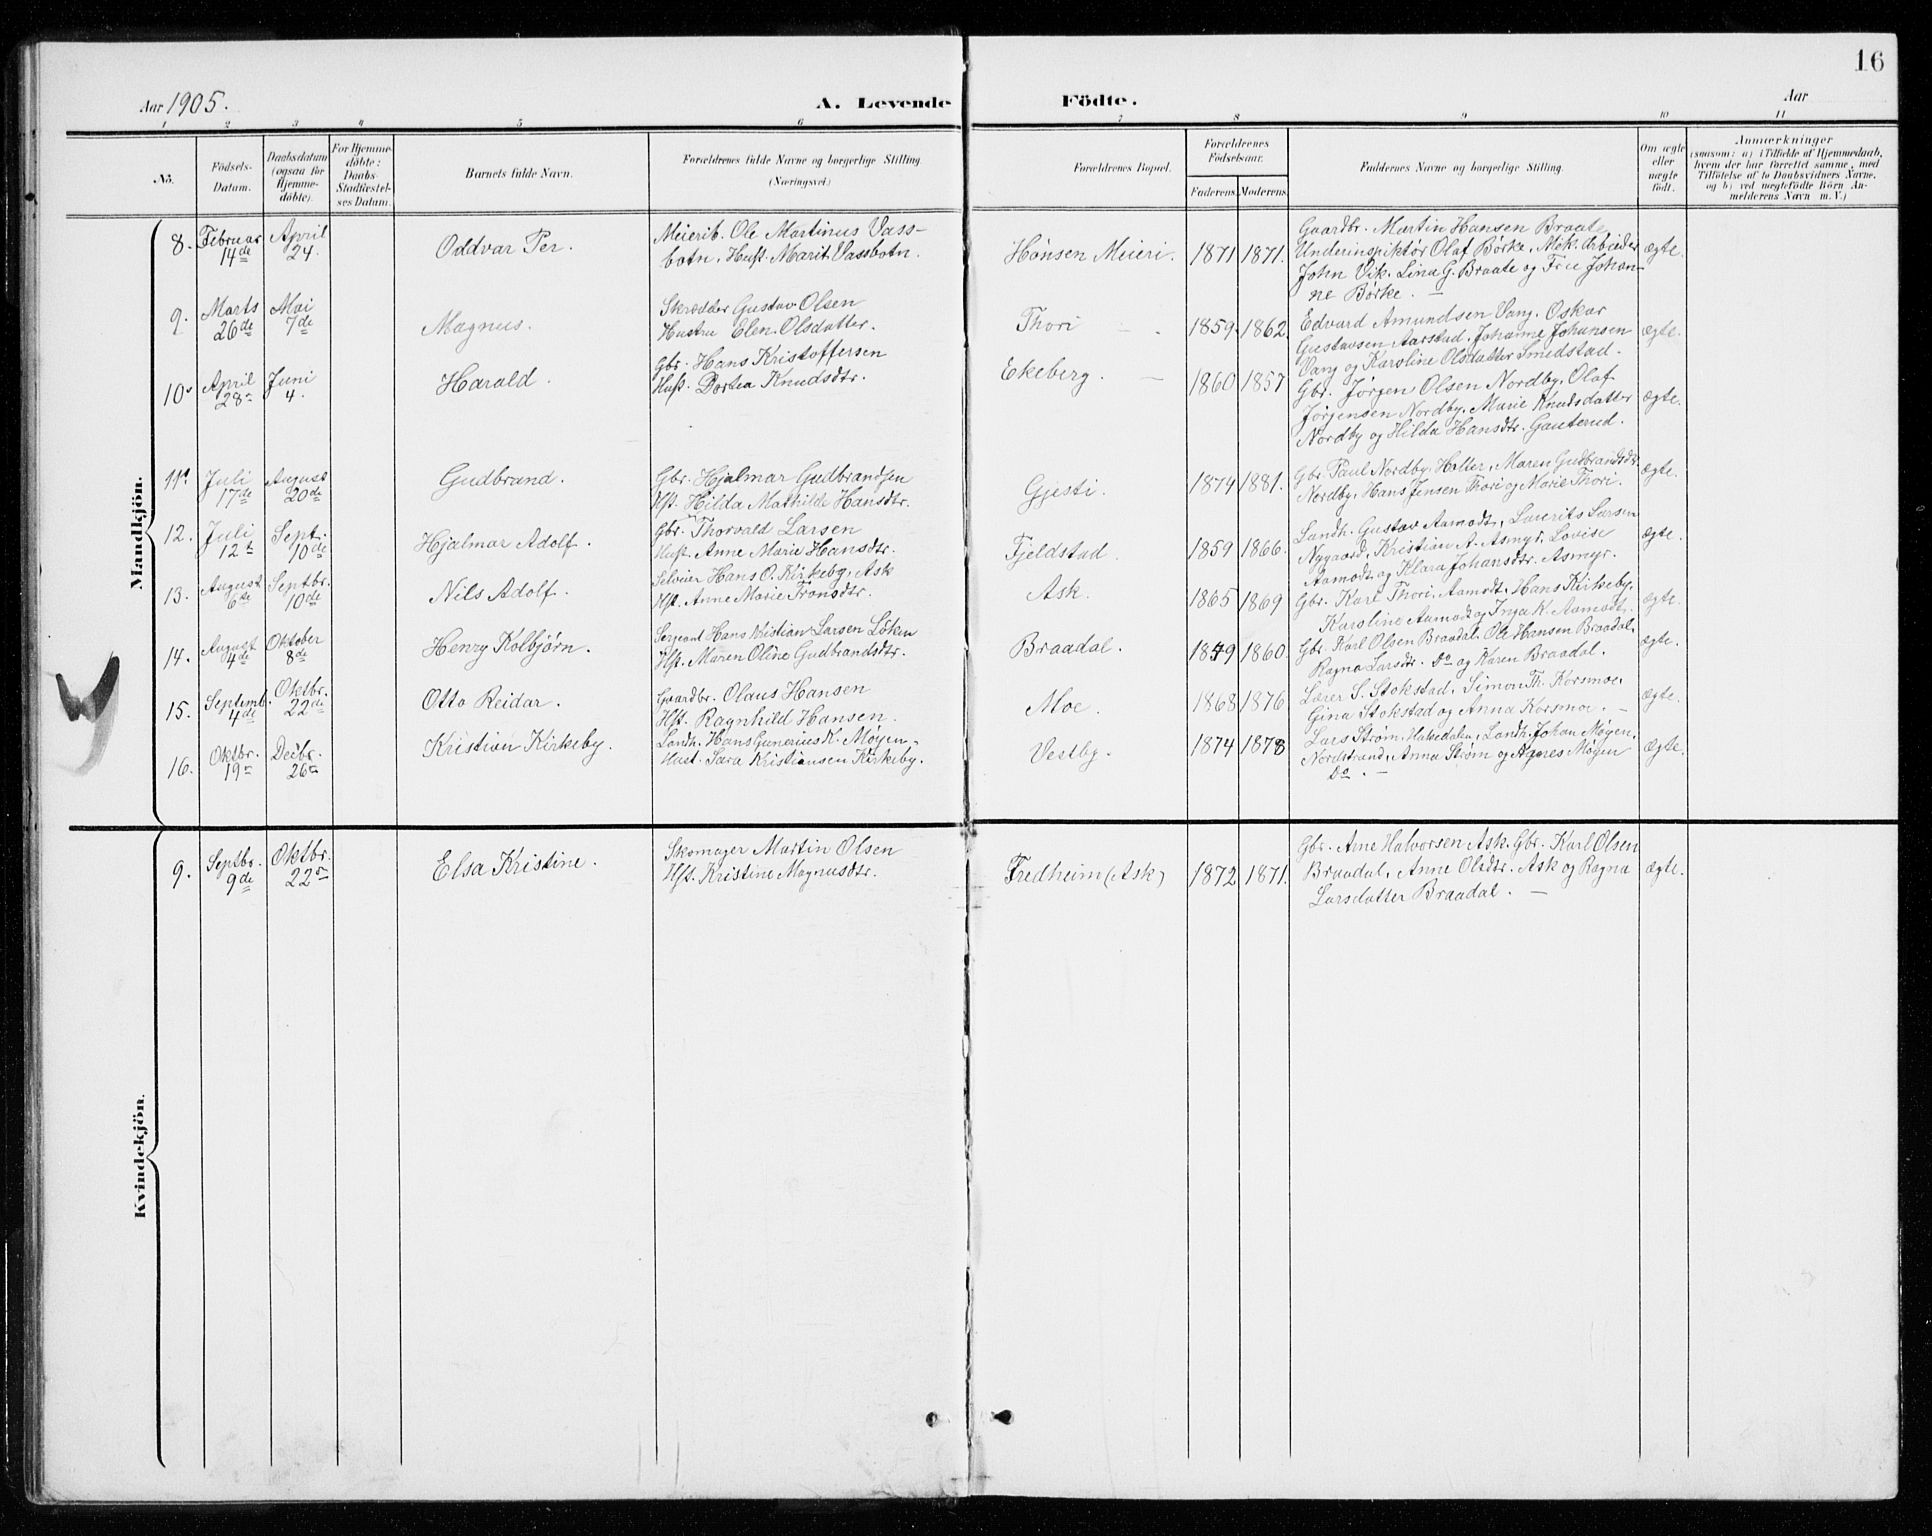 16
Aar 1905.
A. Levende Födte.
Aar
1 2 3 4 5 6 7 8 9 10 11
No.
Födsels-
Datum.
Daabsdatum
(ogsaa för
Hjemme-
döbte).
For Hjemme-
döbte:
Daabs-
Stadfæstel-
ses Datum.
Barnets fulde Navn.
Forældrenes fulde Navne og borgerlige Stilling.
(Næringsvei.)
Forældrenes Bopæl.
Forældrenes
Födselsaar.
Faderens. Moderens.
Faddernes Navne og borgerlige Stilling.
Om ægte
eller
uægte
födt.
Anmærkninger
(saasom: a) i Tilfælde af Hjemmedaab,
hvem der har forrettet samme, med
Tilföielse af to Daabsvidners Navne,
og b) ved uægtefödte Börn An-
melderens Navn m. V.)
Mandkjön.
8. Februar 14de April 24. Oddvar Per.
Meierib. Ole Martinus Vass-
botn. Husf. Marit Vassbotn.
Hønsen Meieri. 1871 1871.
Gaardbr. Martin Hansen Braate
Underinspiktør Olaf Børke, Mek. Arbeider
John Vik. Lina G. Braate og Frue Johan-
ne Børke. —
ægte.
9. Marts 26de Mai 7de Magnus.
Skrædder Gustav Olsen
Hustru Elen Olsdatter.
Thori 1859. 1862
Edvard Amundsen Vang. Oskar
Gustavsen Aarstad. Johanne Johansen
Vang og Karoline Olsdatter Smedstad.
ægte.
10. April 28. Juni 4. Harald.
Gbr. Hans Kristoffersen
Husf. Dortea Knudsdtr.
Ekeberg. — 1860 1857
Gbr. Jørgen Olsen Nordby. Olaf
Jørgensen Nordby. Marie Knudsdatter
Nordby og Hilda Hansdtr. Gauterud.
ægte.
11. Juli 17de August 20de Gudbrand.
Gbr. Hjalmar Gudbrandsen
Hst. Hilda Mathilde Hansdtr.
Gjesti. 1874 1881.
Gbr. Paul Nordby, Heller, Maren Gudbrandsdr.
Nordby, Hans Jensen Thori og Marie Thori.
ægte.
12. Juli 12t Sept. 10de Hjalmar Adolf.
Gbr. Thorvald Larsen
Husf. Anne Marie Hansdtr.
Fjeldstad. 1859 1866.
Landh. Gustav Aamodt, Laurits Larsen
Nygaard, Kristian A. Asmyr, Lovise
Aamodt og Klara Johansdtr. Asmyr.
ægte.
13. August 6de Septbr. 10de Nils Adolf.
Selveier Hans O. Kirkeby, Ask
Hst. Anne Marie Tronsdtr.
Ask. 1865 1869
Gbr. Karl Thori, Aamodt, Hans Kirkeby.
Karoline Aamodt og Inga K. Aamodt.
ægte.
14. August 4de Oktober 8de Henry Kolbjørn.
Sergeant Hans Kristian Larsen Løken
Hst. Maren Oline Gudbrandsdtr.
Braadal. 1859 1860.
Gbr. Karl Olsen Braadal. Ole Hansen Braadal.
Ragna Larsdtr. Do og Karen Braadal.
ægte.
15. Septemb. 4de Oktbr. 22de Otto Reidar.
Gaardbr. Olaus Hansen
Hst. Ragnhild Hansen.
Moe. 1868 1876
Lærer S. Stokstad, Simon Th. Korsmoe.
Gina Stokstad og Anna Korsmoe. —
ægte.
16. Oktbr. 19de Decbr. 26de Kristian Kirkeby.
Landh. Hans Gunerius K. Møyen.
Hust. Sara Kristiansen Kirkeby.
Vestby. 1874 1878
Lars Strøm, Landh. Johan Møyen,
Nordstrand, Anna Strøm og Agnes Møyen
Do. —
ægte.
Kvindekjön.
9. Septbr. 9de Oktbr. 22de Elsa Kristine.
Skomager Martin Olsen
Hst. Kristine Magnusdtr.
Fredheim (Ask) 1872 1871.
Gbr. Arne Halvorsen Ask. Gbr. Karl Olsen
Braadal, Anne Olsdtr. Ask og Ragna
Larsdatter Braadal. —
ægte.